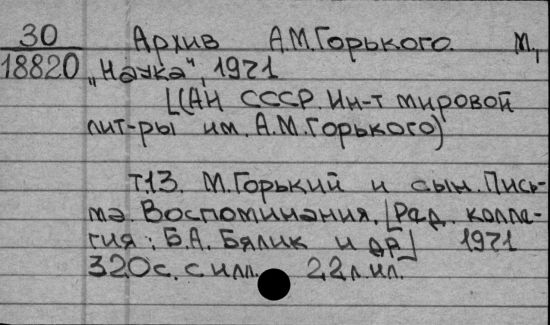 30 Архив А.М.Горького. М.,
18820 „Наука“, 1971
[(АН СССР. Ин-т мировой
лит-ры им. А.М.Горького)
Т.13. М.Горький и сын. Пись-
ма. Воспоминания. [Ред. колле-
гия: Б.А. Бялик и др.] 1971
320с. с илл. 22л.ил.